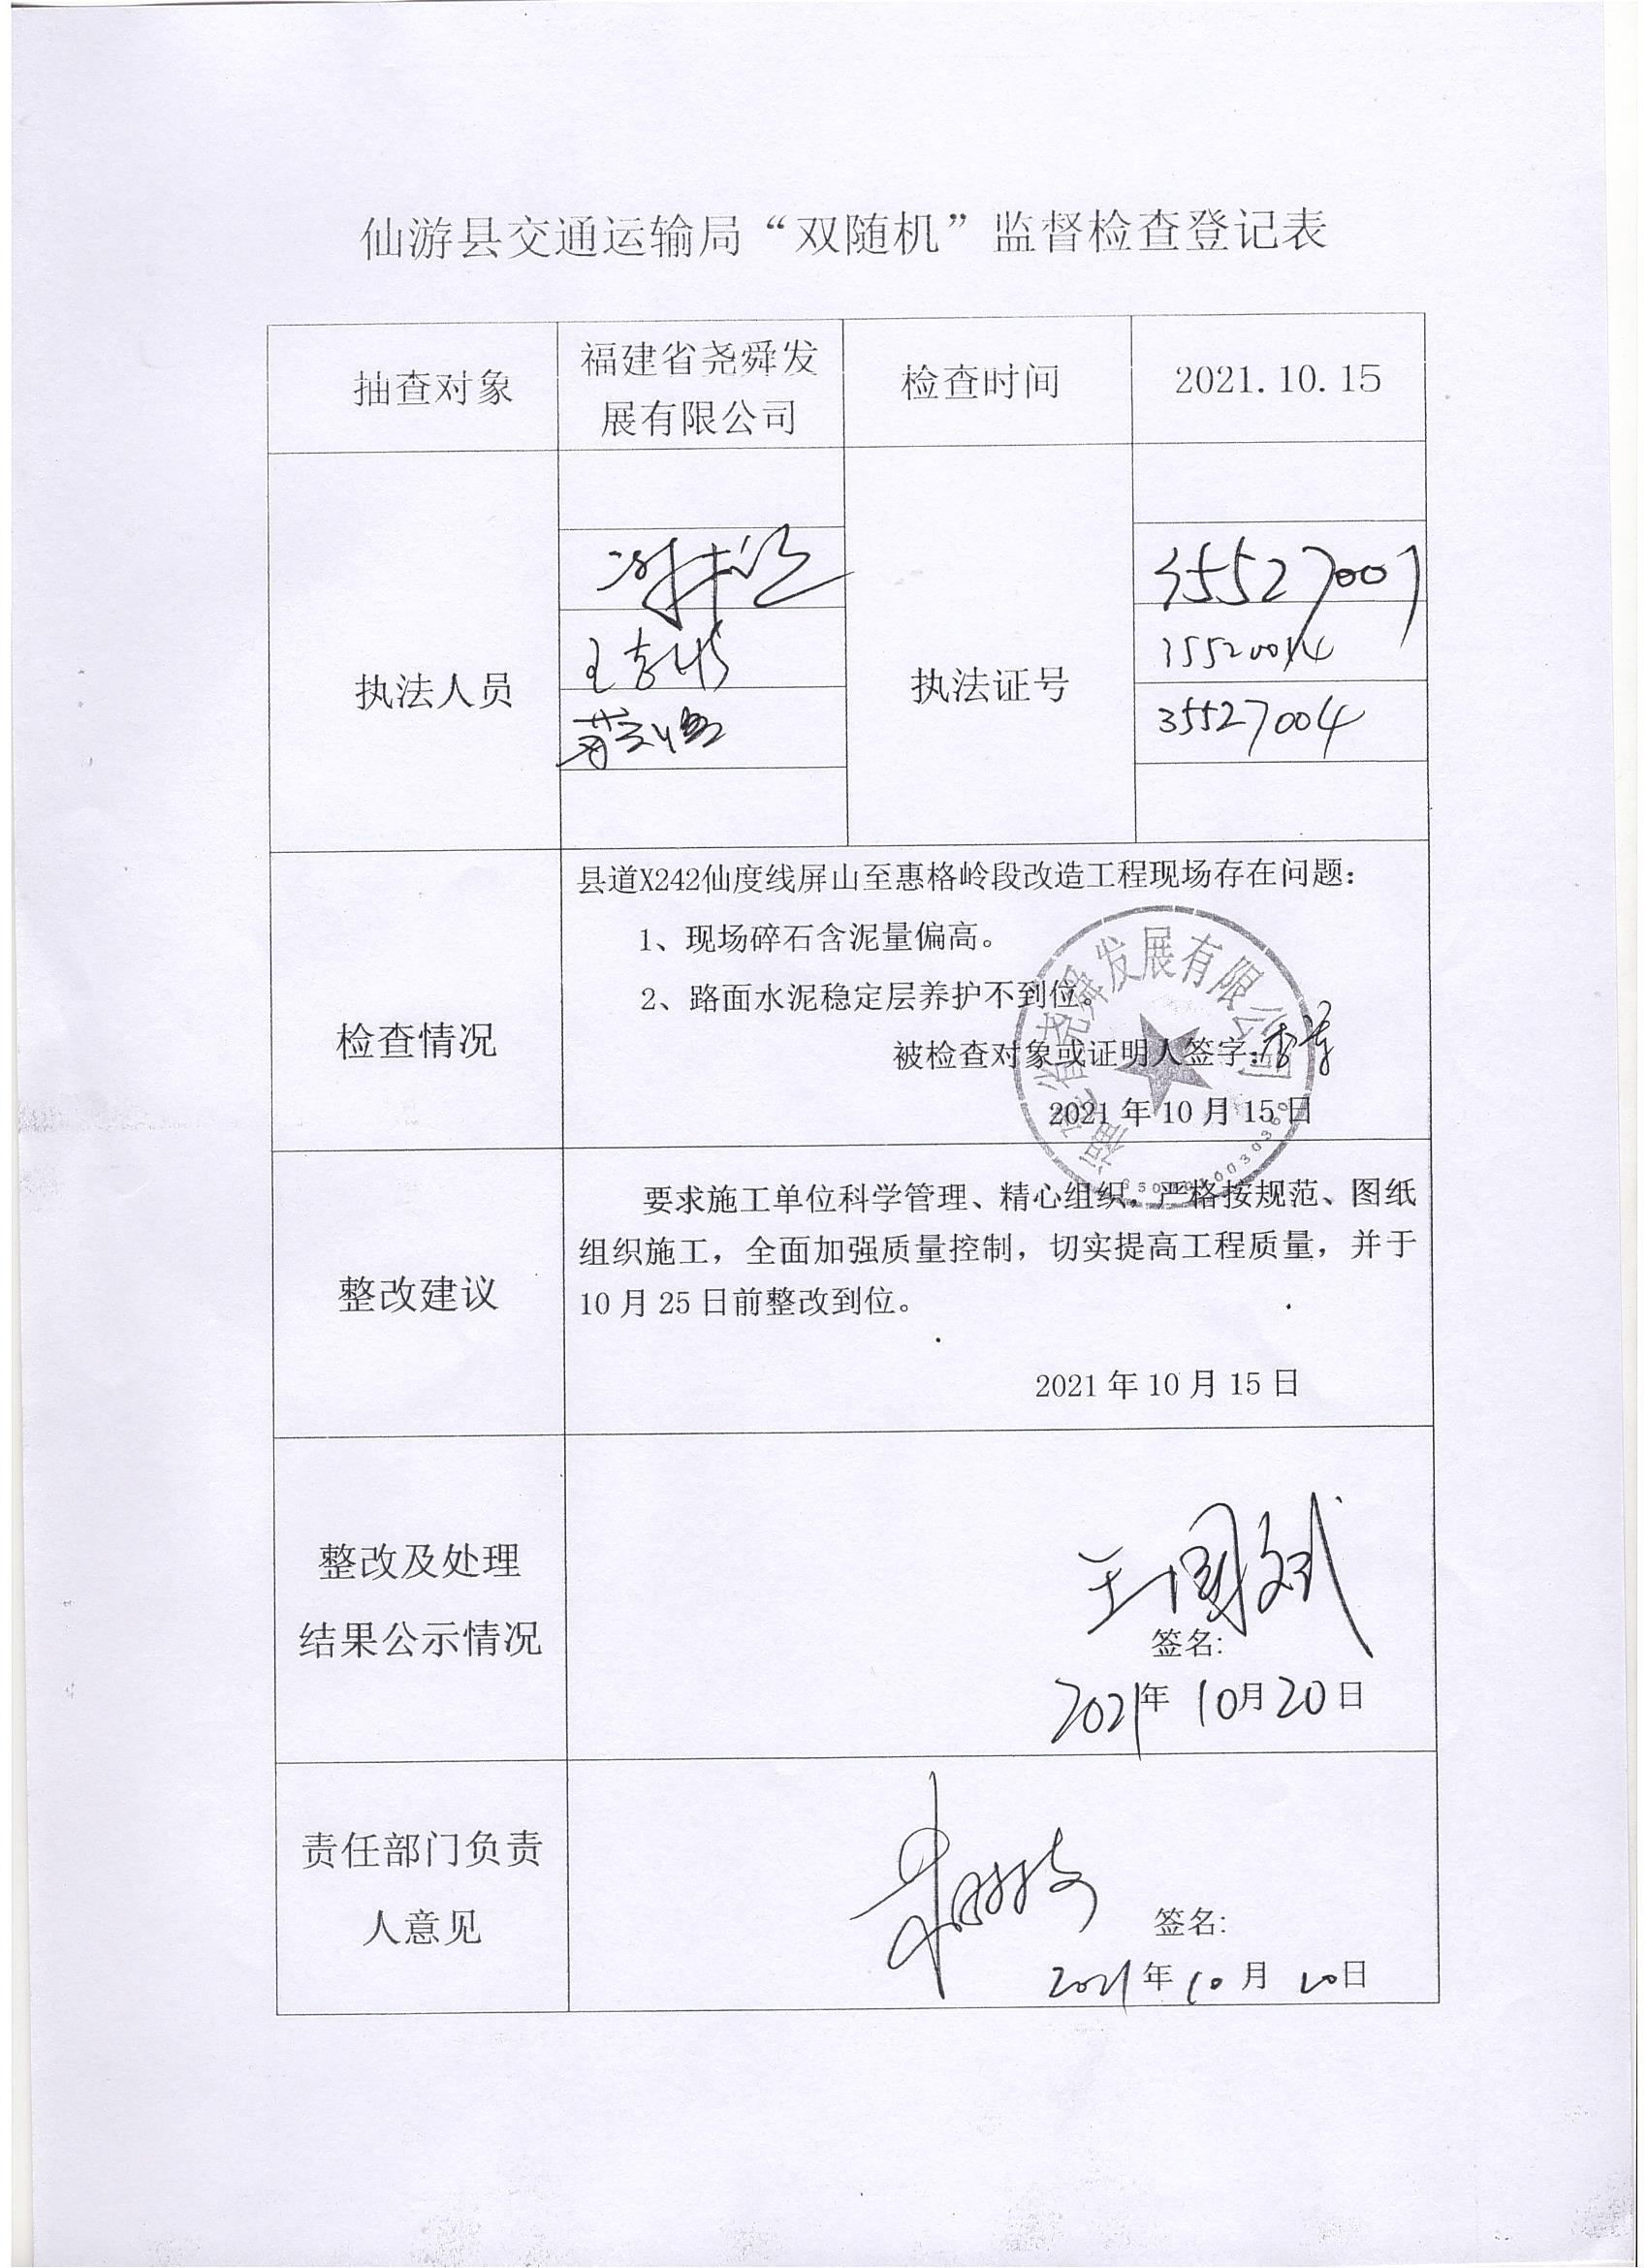 仙游县交通运输局“双随机”监督检查登记表
抽查对象
福建省尧舜发
展有限公司
检查时间
2021.10.15
执法人员
王
执法证号
35527001
35527004
检查情况
县道X242仙度线屏山至惠格岭段改造工程现场存在问题：
1、现场碎石含泥量偏高。
2、路面水泥稳定层养护不到位。
被检查对象或证明人签字：
2021年10月15日
福建省尧舜发展有限公司
整改建议
要求施工单位科学管理、精心组织，严格按规范、图纸
组织施工，全面加强质量控制，切实提高工程质量，并于
10月25日前整改到位。
2021年10月15日
整改及处理
结果公示情况
王国斌
签名：
2021年10月20日
责任部门负责
人意见
签名：
2021年10月20日